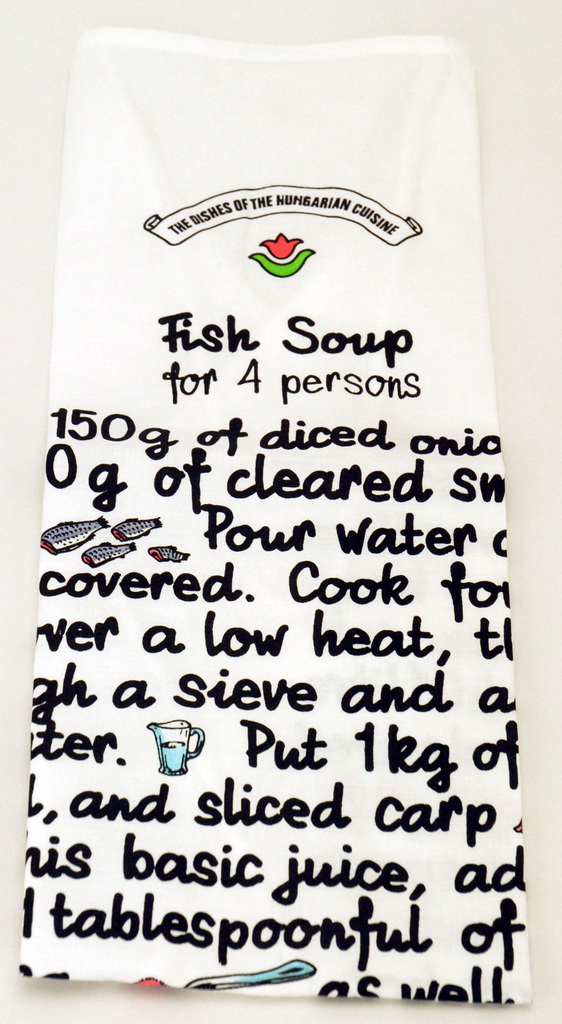 THE DISHES OF THE HUNGARIAN CUISINE
Fish Soup
for 4 persons
150g of diced onio
0 g of cleared sm
Pour water
covered. Cook for
ver a low heat, th
gh a sieve and a
ter. Put 1kg of
, and sliced carp
his basic juice, ad
tablespoonful of
as well.